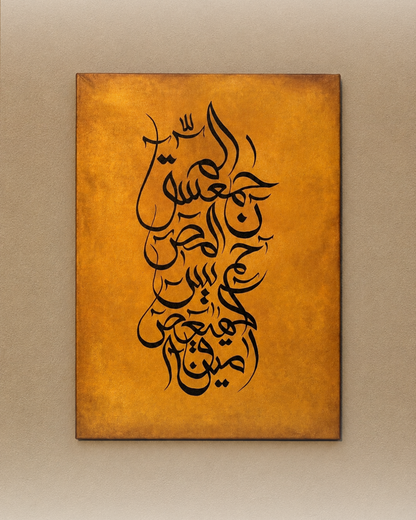 الم
حمعسق
ن
المص
حم
يس
كهيعص
امين